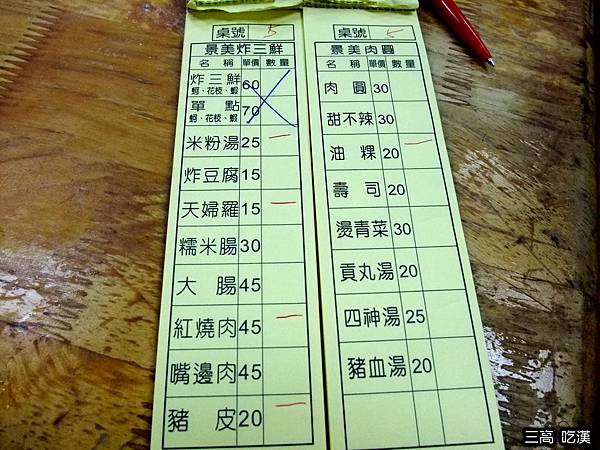 桌號 5
景美炸三鮮
名稱 單價 數量
炸三鮮 60
蚵、花枝、蝦
單點 70
蚵、花枝、蝦
米粉湯 25 一
炸豆腐 15
天婦羅 15 一
糯米腸 30
大腸 45
紅燒肉 45 一
嘴邊肉 45
豬皮 20 一
桌號
景美肉圓
名稱 單價 數量
肉圓 30
甜不辣 30
油粿 20 一
壽司 20
燙青菜 30
貢丸湯 20
四神湯 25
豬血湯 20
三高 吃漢